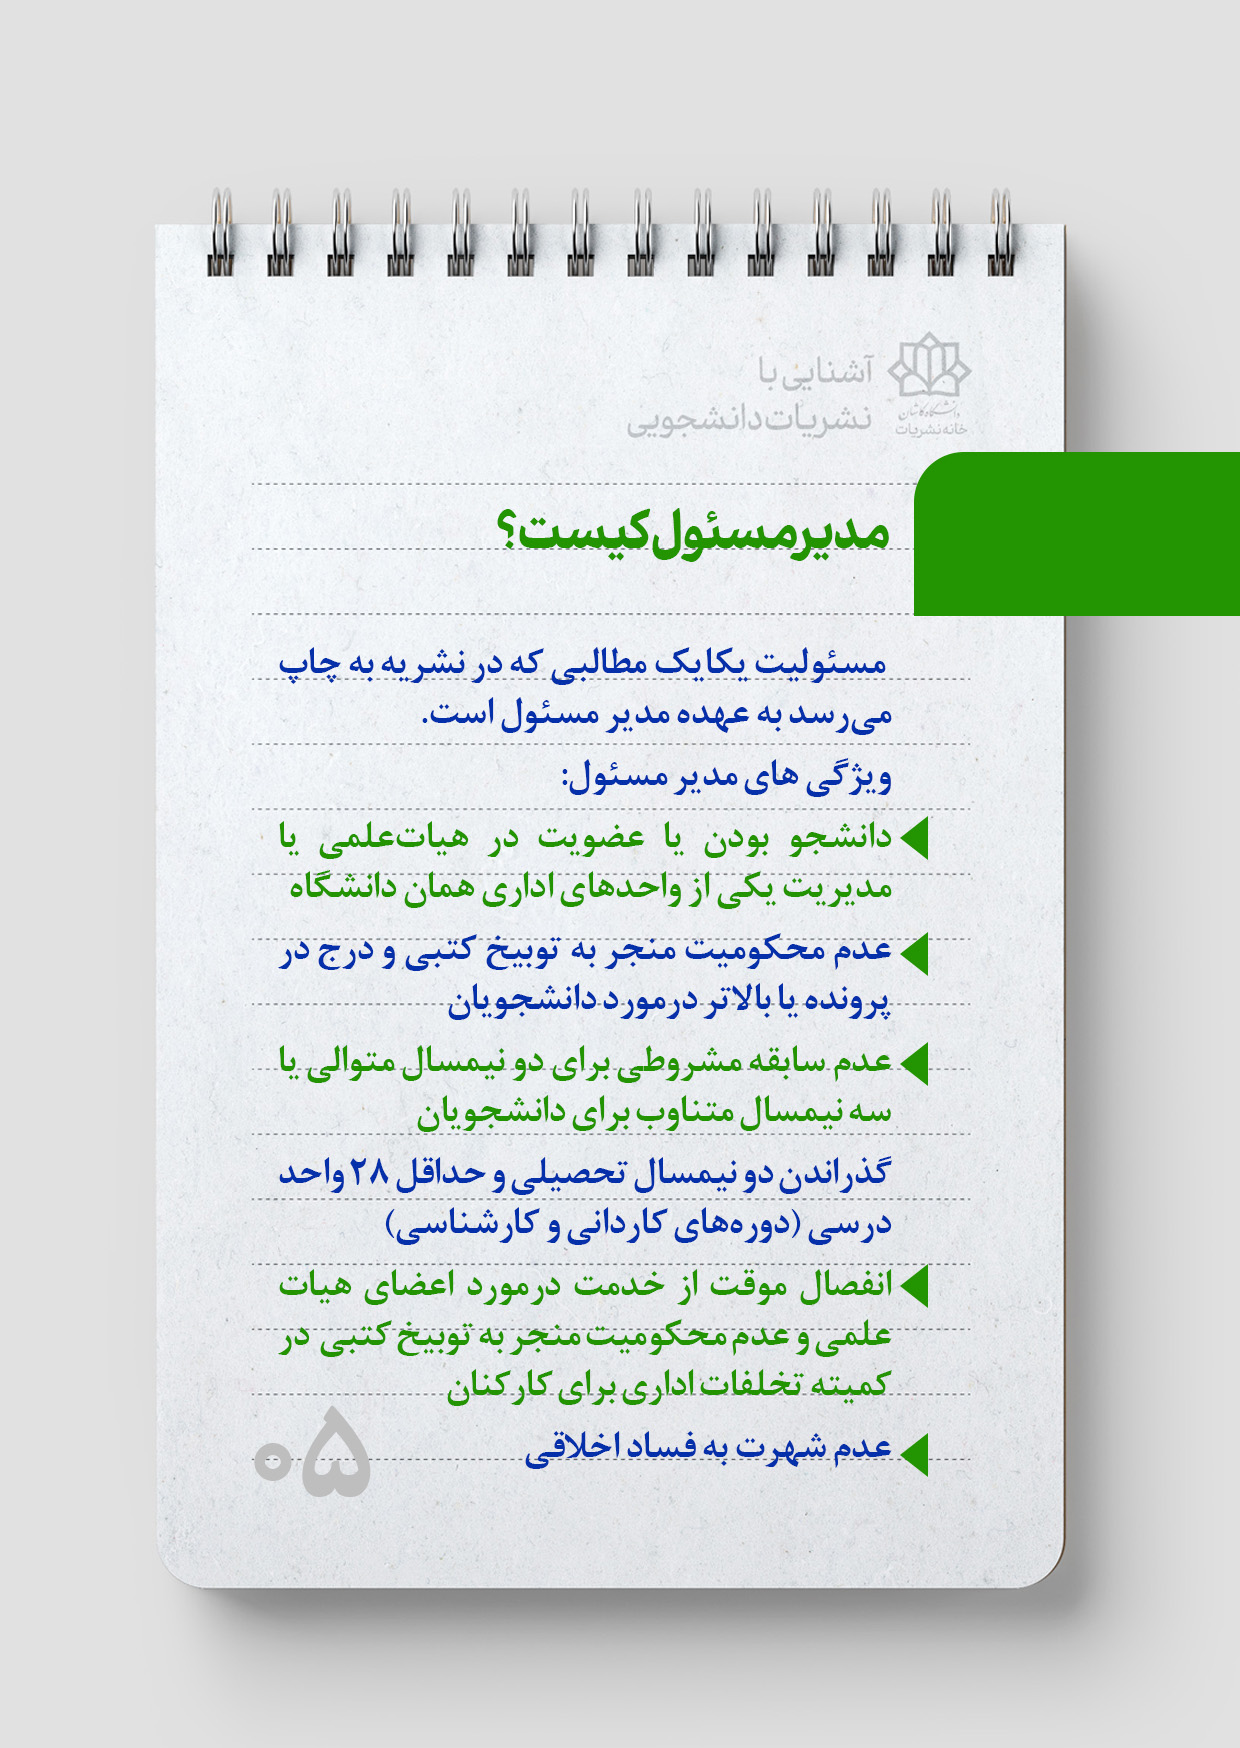 آشنایی با
نشریات دانشجویی
دانشگاه کاشان
خانه نشریات
مدیرمسئول کیست؟
مسئولیت یکایک مطالبی که در نشریه به چاپ
می‌رسد به عهده مدیر مسئول است.
ویژگی های مدیر مسئول:
دانشجو بودن یا عضویت در هیات‌علمی یا
مدیریت یکی از واحدهای اداری همان دانشگاه
عدم محکومیت منجر به توبیخ کتبی و درج در
پرونده یا بالاتر درمورد دانشجویان
عدم سابقه مشروطی برای دو نیمسال متوالی یا
سه نیمسال متناوب برای دانشجویان
گذراندن دو نیمسال تحصیلی و حداقل ۲۸ واحد
درسی (دوره‌های کاردانی و کارشناسی)
انفصال موقت از خدمت درمورد اعضای هیات
علمی و عدم محکومیت منجر به توبیخ کتبی در
کمیته تخلفات اداری برای کارکنان
عدم شهرت به فساد اخلاقی
۰۵